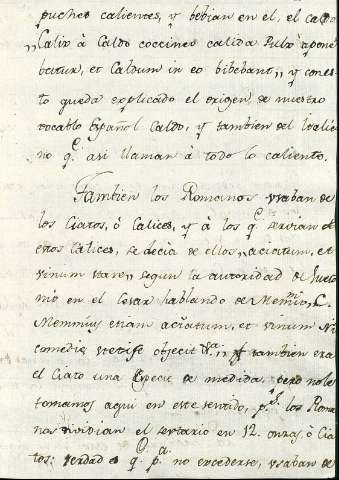 puches calientes, y bebian en el, el caldo
„Calix à Caldo coccinei calida Puls apone
batur, et Caldum in eo bibebant„ y con es
to queda explicado el origen de nuestro
vocablo Español Caldo, y tambien del Italia
no q.e asi llaman à todo lo caliente.
Tambien los Romanos vsaban de
los Ciatos, ò Calices, y à los q.e servian de
estos Calices, se decia de ellos, „aciatum, et
vinum stare„ segun la autoridad de Sueto
nio en el Cesar hablando de Memmio, C.
Memmius etiam aciatum, et vinum
comedie objecit y tambien era
el Ciato una Especie de medida, pero no le
tomamos aqui en este sentido, p.s los Roma
nos dividian el sextario en 12. onzas, ò Cia
tos: verdad q.e p.a no excederse, vsaban de